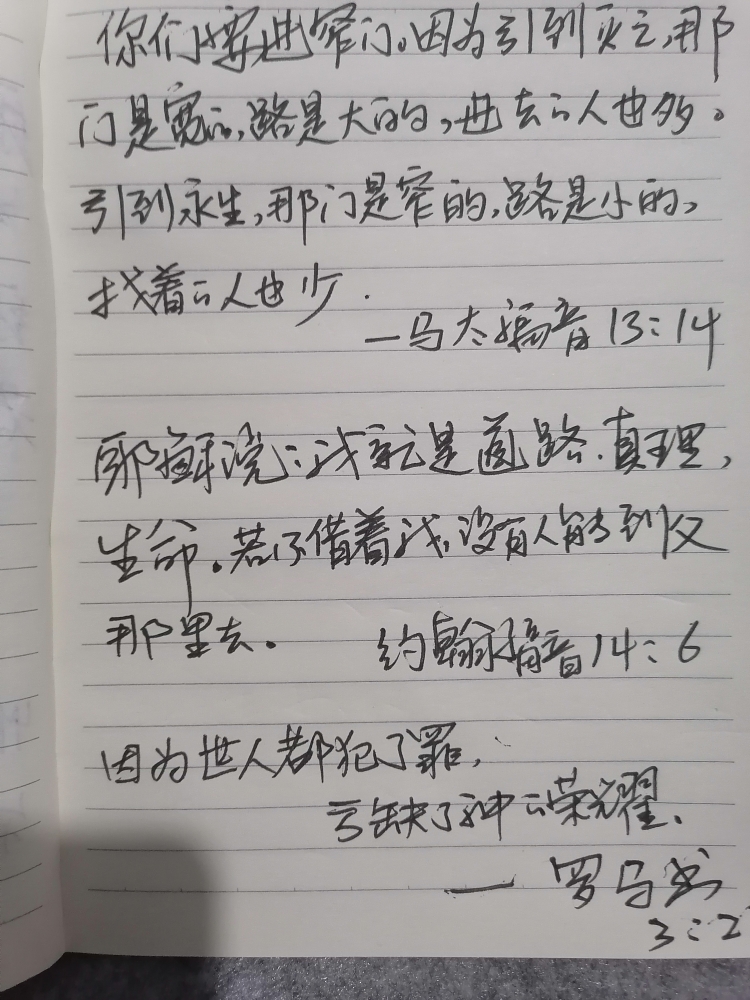 你们要进窄门。因为引到灭亡,那
门是宽的,路是大的,进去的人也多。
引到永生,那门是窄的,路是小的,
找着的人也少.
—马太福音13:14
耶稣说:我就是道路.真理,
生命。若不借着我,没有人能到父
那里去。
约翰福音14:6
因为世人都犯了罪,
亏缺了神的荣耀.
— 罗马书
3:2